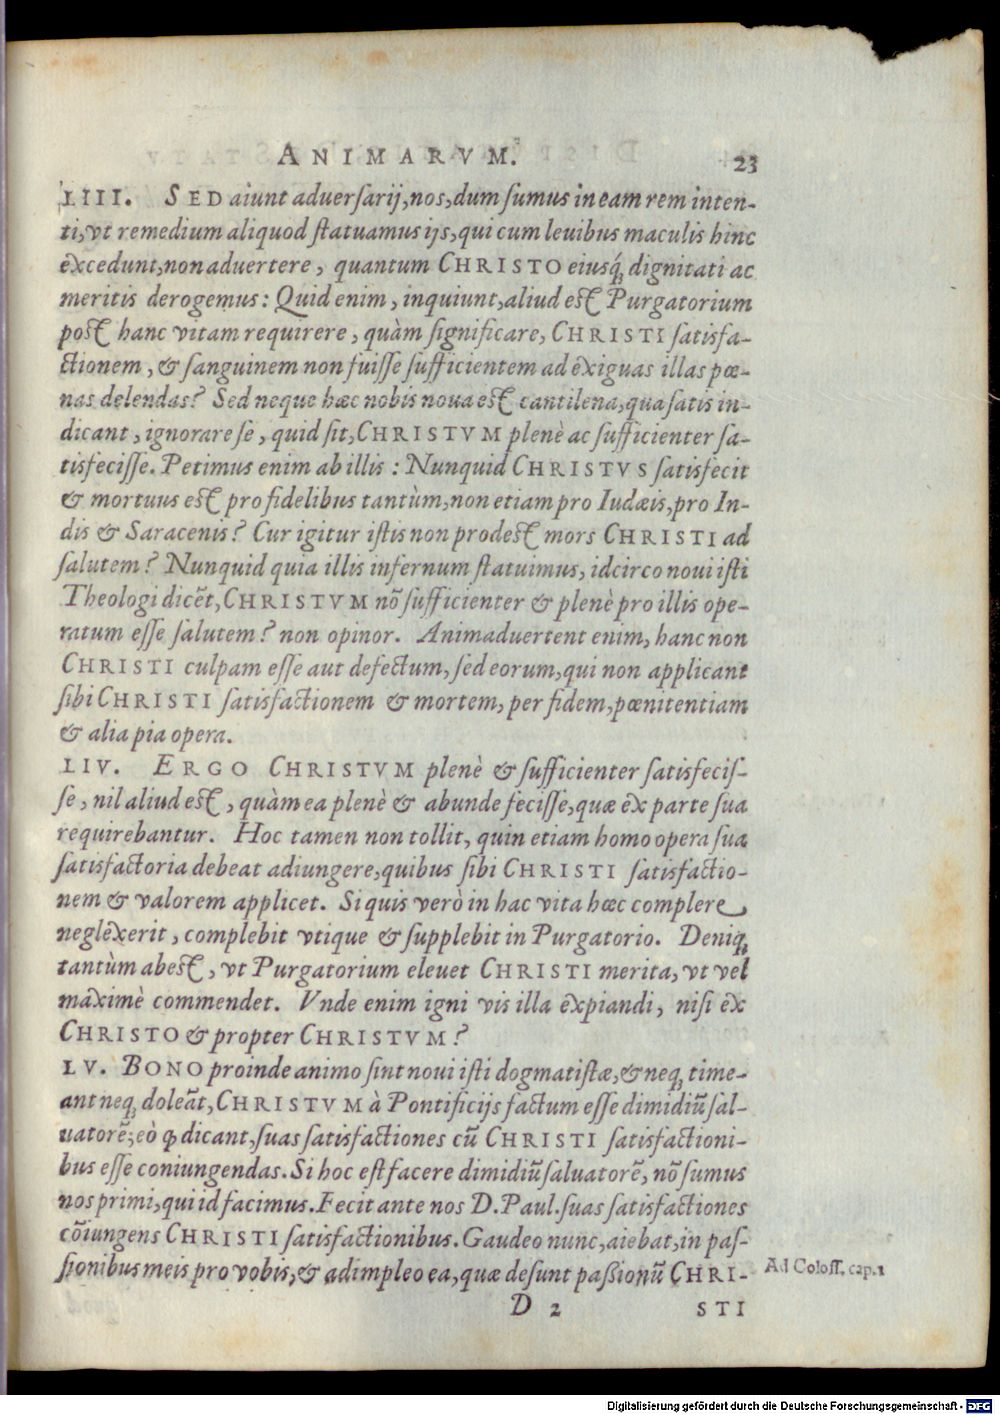 ANIMARVM. 23
LIII. SED aiunt aduersarij, nos, dum sumus in eam rem inten-
ti, vt remedium aliquod statuamus ijs, qui cum leuibus maculis hinc
excedunt, non aduertere, quantum CHRISTO eiusq́; dignitati ac
meritis derogemus: Quid enim, inquiunt, aliud est Purgatorium
post hanc vitam requirere, quàm significare, CHRISTI satisfa-
ctionem, & sanguinem non fuisse sufficientem ad exiguas illas pœ-
nas delendas? Sed neque hæc nobis noua est cantilena, qua satis in-
dicant, ignorare se, quid sit, CHRISTVM plenè ac sufficienter sa-
tisfecisse. Petimus enim ab illis: Nunquid CHRISTVS satisfecit
& mortuus est pro fidelibus tantùm, non etiam pro Iudæis, pro In-
dis & Saracenis? Cur igitur istis non prodest mors CHRISTI ad
salutem? Nunquid quia illis infernum statuimus, idcirco noui isti
Theologi dicẽt, CHRISTVM nõ sufficienter & plenè pro illis ope-
ratum esse salutem? non opinor. Animaduertent enim, hanc non
CHRISTI culpam esse aut defectum, sed eorum, qui non applicant
sibi CHRISTI satisfactionem & mortem, per fidem, pœnitentiam
& alia pia opera.
LIV. ERGO CHRISTVM plenè & sufficienter satisfecis-
se, nil aliud est, quàm ea plenè & abunde fecisse, quæ ex parte sua
requirebantur. Hoc tamen non tollit, quin etiam homo opera sua
satisfactoria debeat adiungere, quibus sibi CHRISTI satisfactio-
nem & valorem applicet. Si quis verò in hac vita hæc complere
neglexerit, complebit vtique & supplebit in Purgatorio. Deniq;
tantùm abest, vt Purgatorium eleuet CHRISTI merita, vt vel
maximè commendet. Vnde enim igni vis illa expiandi, nisi ex
CHRISTO & propter CHRISTVM?
LV. BONO proinde animo sint noui isti dogmatistæ, & neq; time-
ant neq; doleãt, CHRISTVM à Pontificijs factum esse dimidiũ sal-
uatorẽ, eò ꝙ dicant, suas satisfactiones cũ CHRISTI satisfactioni-
bus esse coniungendas. Si hoc est facere dimidiũ saluatorẽ, nõ sumus
nos primi, qui id facimus. Fecit ante nos D. Paul. suas satisfactiones
cõiungens CHRISTI satisfactionibus. Gaudeo nunc, aiebat, in pas-
sionibus meis pro vobis, & adimpleo ea, quæ desunt paßionũ CHRI-
Ad Coloss. cap. 1
D 2 STI
Digitalisierung gefördert durch die Deutsche Forschungsgemeinschaft - DFG